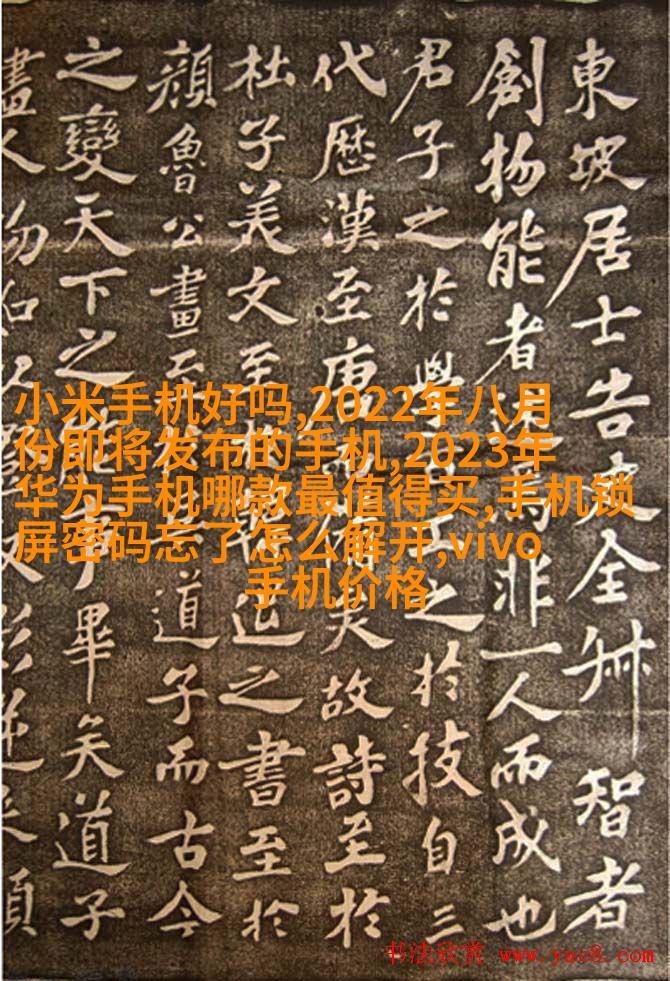 東坡居士告史全叔智者
創物能者述焉非一人而成也
君子之於學百工之於技自三
代歷漢至唐而備矣故詩至於
杜子美文至於韓退之書至於
顏魯公畫至吳道子而古今
之變天下之能事畢矣道子
畫人物如以燈取影逆來順
小米手机好吗,2022年八月
份即将发布的手机,2023年
华为手机哪款最值得买,手机锁
屏密码忘了怎么解开,vivo
手机价格
书法欣赏 www.yac8.com